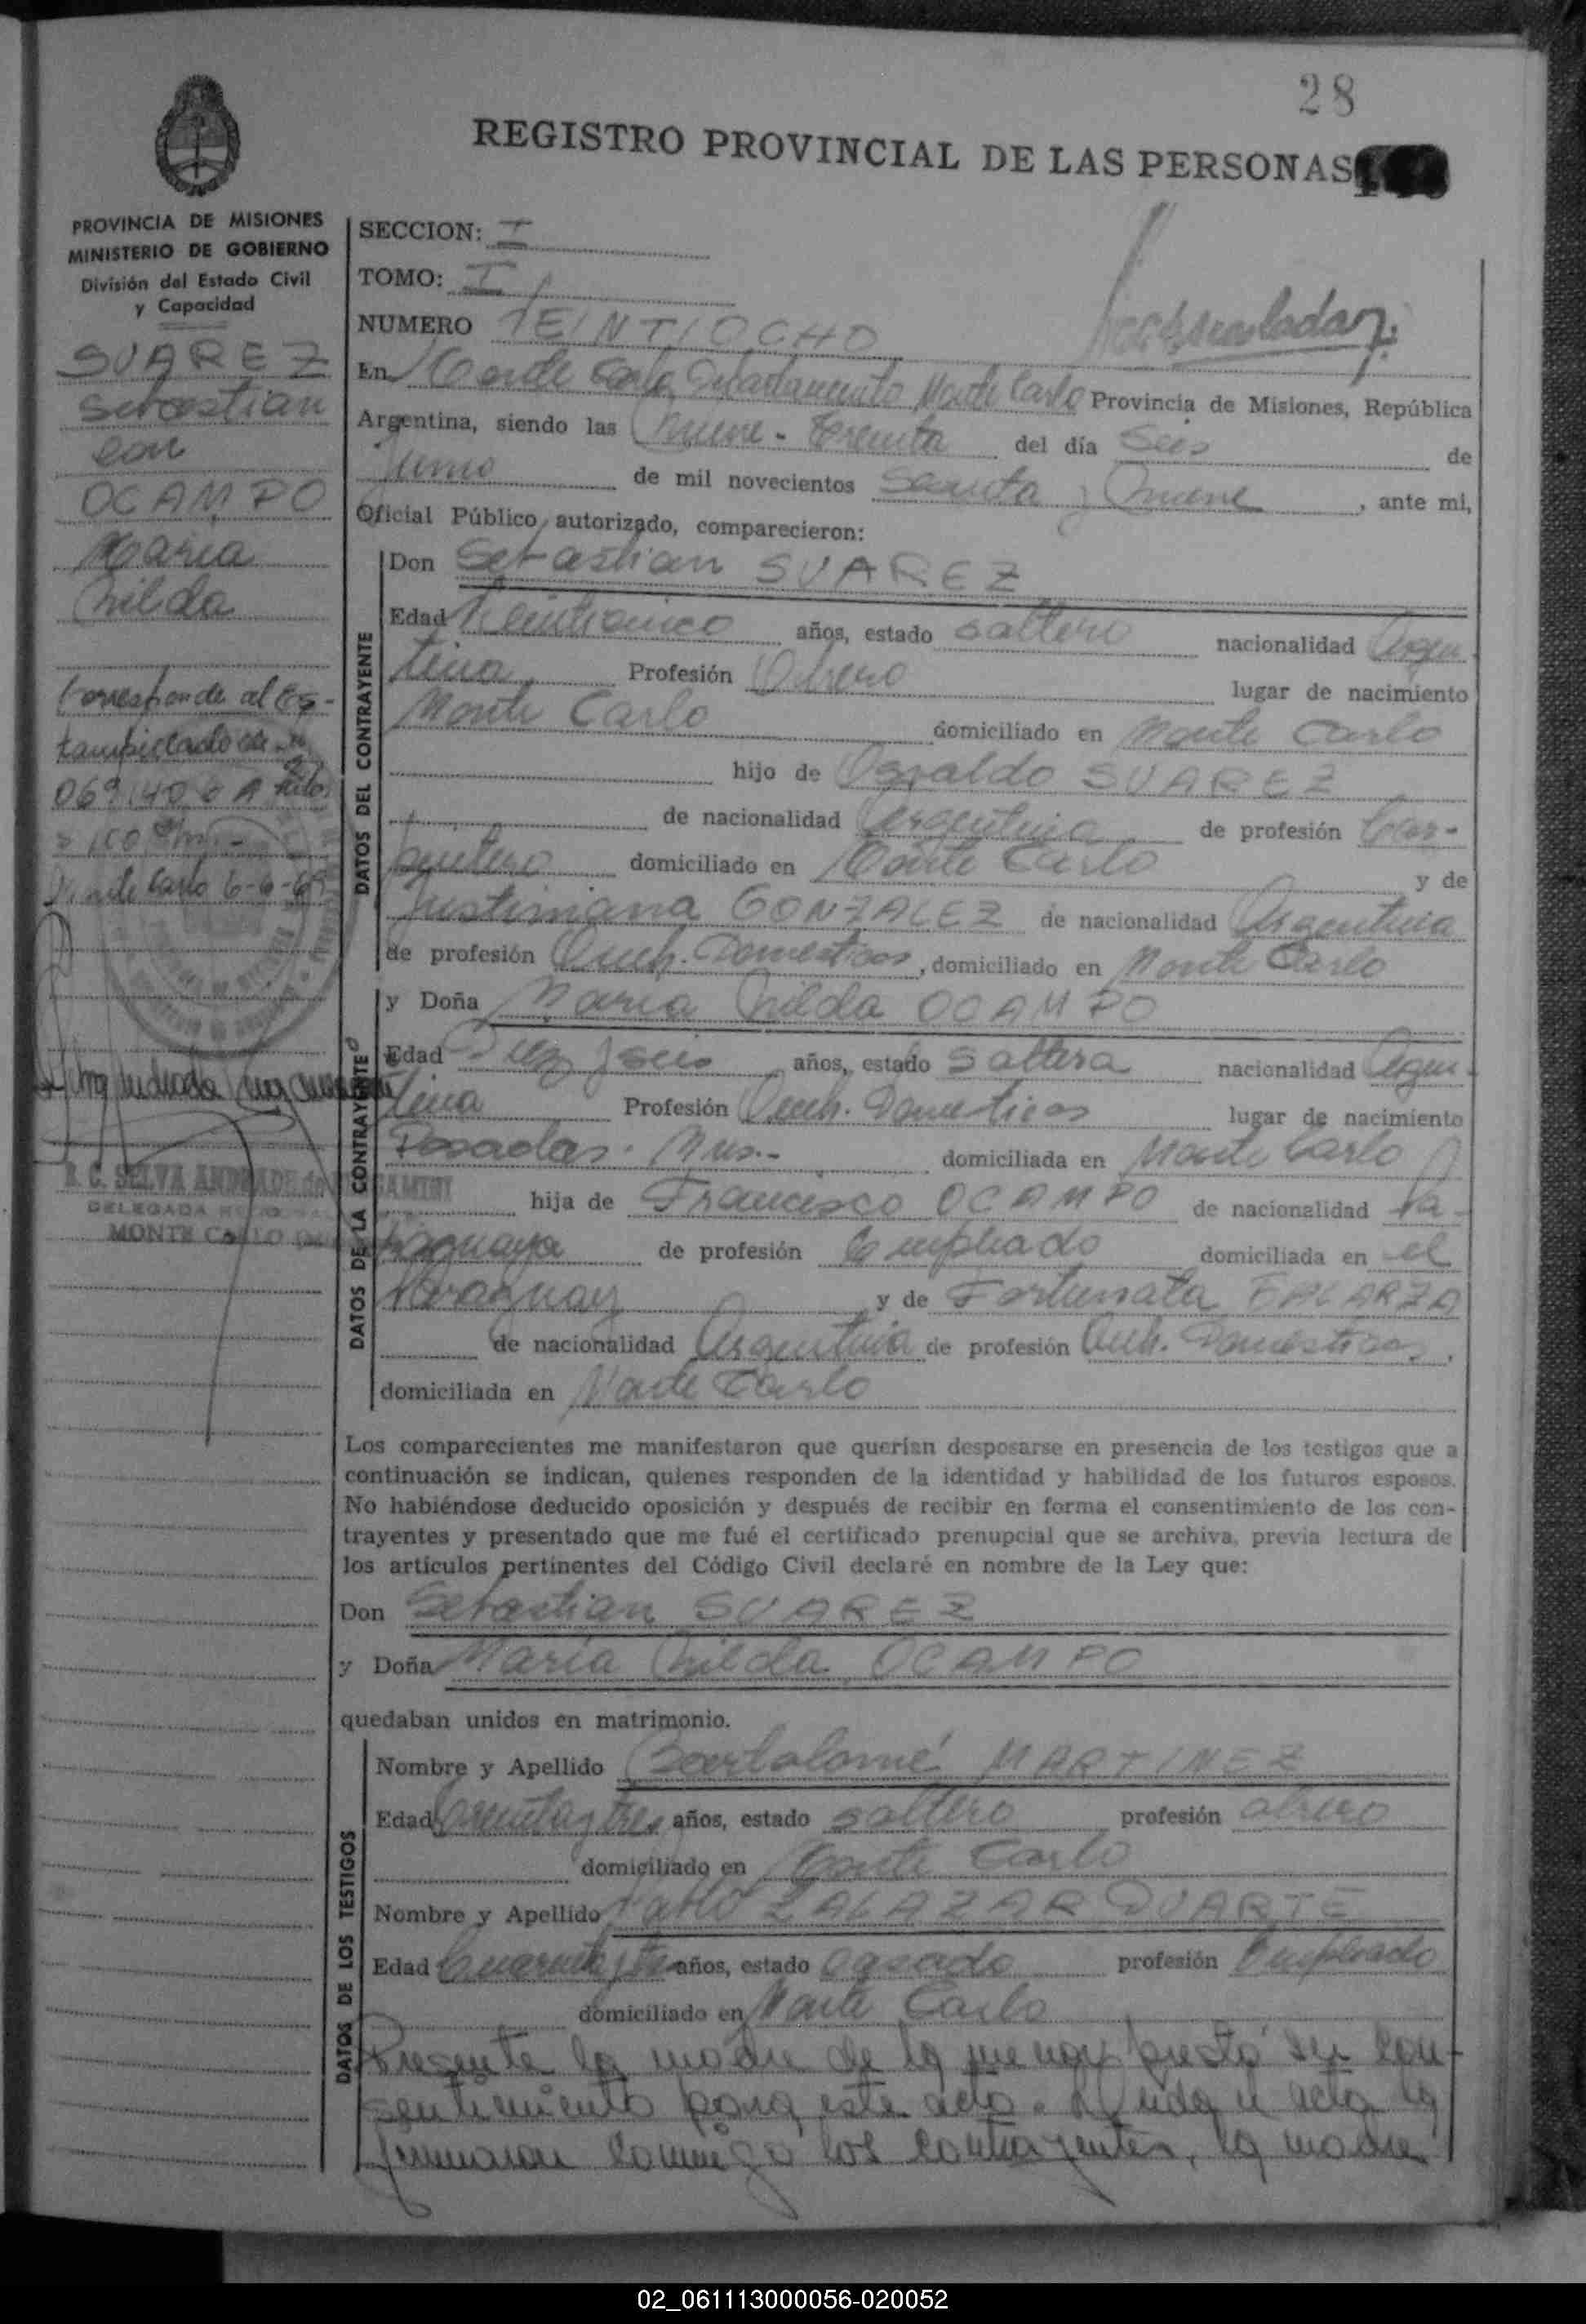 28
REGISTRO PROVINCIAL DE LAS PERSONAS
PROVINCIA DE MISIONES
MINISTERIO DE GOBIERNO
División del Estado Civil
y Capacidad
SUAREZ
Sebastian
con
OCAMPO
Maria
Nilda
Corresponde al Es-
tampillado de
Monte Carlo 6-6-69
R. C. SELVA ANDRADE de
DELEGADA
MONTE CARLO
SECCION: I
TOMO: I
NUMERO VEINTIOCHO
En Monte Carlo Departamento Monte Carlo Provincia de Misiones, República
Argentina, siendo las nueve - treinta del día Seis de
Junio de mil novecientos Sesenta y Nueve, ante mi,
Oficial Público autorizado, comparecieron:
DATOS DEL CONTRAYENTE
Don Sebastian SUAREZ
Edad Veinticinco años, estado soltero nacionalidad Argen-
tina Profesión Obrero lugar de nacimiento
Monte Carlo domiciliado en Monte Carlo
hijo de Osvaldo SUAREZ
de nacionalidad Argentina de profesión Car-
pintero domiciliado en Monte Carlo y de
Justiniana GONZALEZ de nacionalidad Argentina
de profesión Queh. Domesticos, domiciliado en Monte Carlo
DATOS DE LA CONTRAYENTE
y Doña Maria Nilda OCAMPO
Edad Diez y seis años, estado soltera nacionalidad Argen-
tina Profesión Queh. Domesticos lugar de nacimiento
Posadas - Mns.- domiciliada en Monte Carlo
hija de Francisco OCAMPO de nacionalidad Pa-
raguaya de profesión Empleado domiciliada en el
Paraguay y de Fortunata
de nacionalidad Argentina de profesión Queh. Domesticos,
domiciliada en Monte Carlo
Los comparecientes me manifestaron que querían desposarse en presencia de los testigos que a
continuación se indican, quienes responden de la identidad y habilidad de los futuros esposos.
No habiéndose deducido oposición y después de recibir en forma el consentimiento de los con-
trayentes y presentado que me fué el certificado prenupcial que se archiva, previa lectura de
los artículos pertinentes del Código Civil declaré en nombre de la Ley que:
Don Sebastian SUAREZ
y Doña Maria Nilda OCAMPO
quedaban unidos en matrimonio.
DATOS DE LOS TESTIGOS
Nombre y Apellido Bartolomé MARTINEZ
Edad treinta y tres años, estado soltero profesión obrero
domiciliado en Monte Carlo
Nombre y Apellido Pablo ZALAZAR DUARTE
Edad años, estado casado profesión Empleado
domiciliado en Monte Carlo
Presente la madre de la menor presta su con-
sentimiento para este acto. Leida el acta la
firmaron conmigo los contrayentes, la madre
02_061113000056-020052